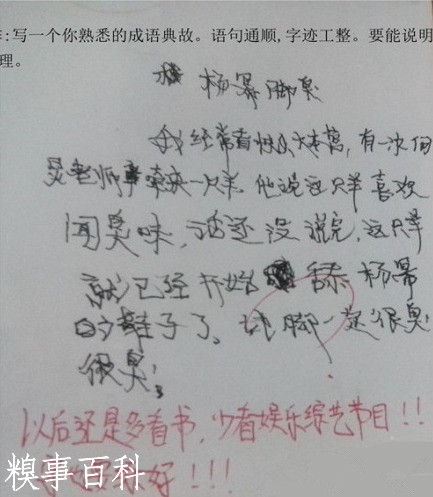 :写一个你熟悉的成语典故。语句通顺,字迹工整。要能说明
理。
杨幂脚臭
我经常看快乐大本营,有一次何
炅老师牵来一只羊。他说这只羊喜欢
闻臭味,话还没说完,这只羊
就已经开始舔杨幂
的鞋子了。她脚一定很臭
很臭!
以后还是多看书,少看娱乐综艺节目!!
好!!!
糗事百科